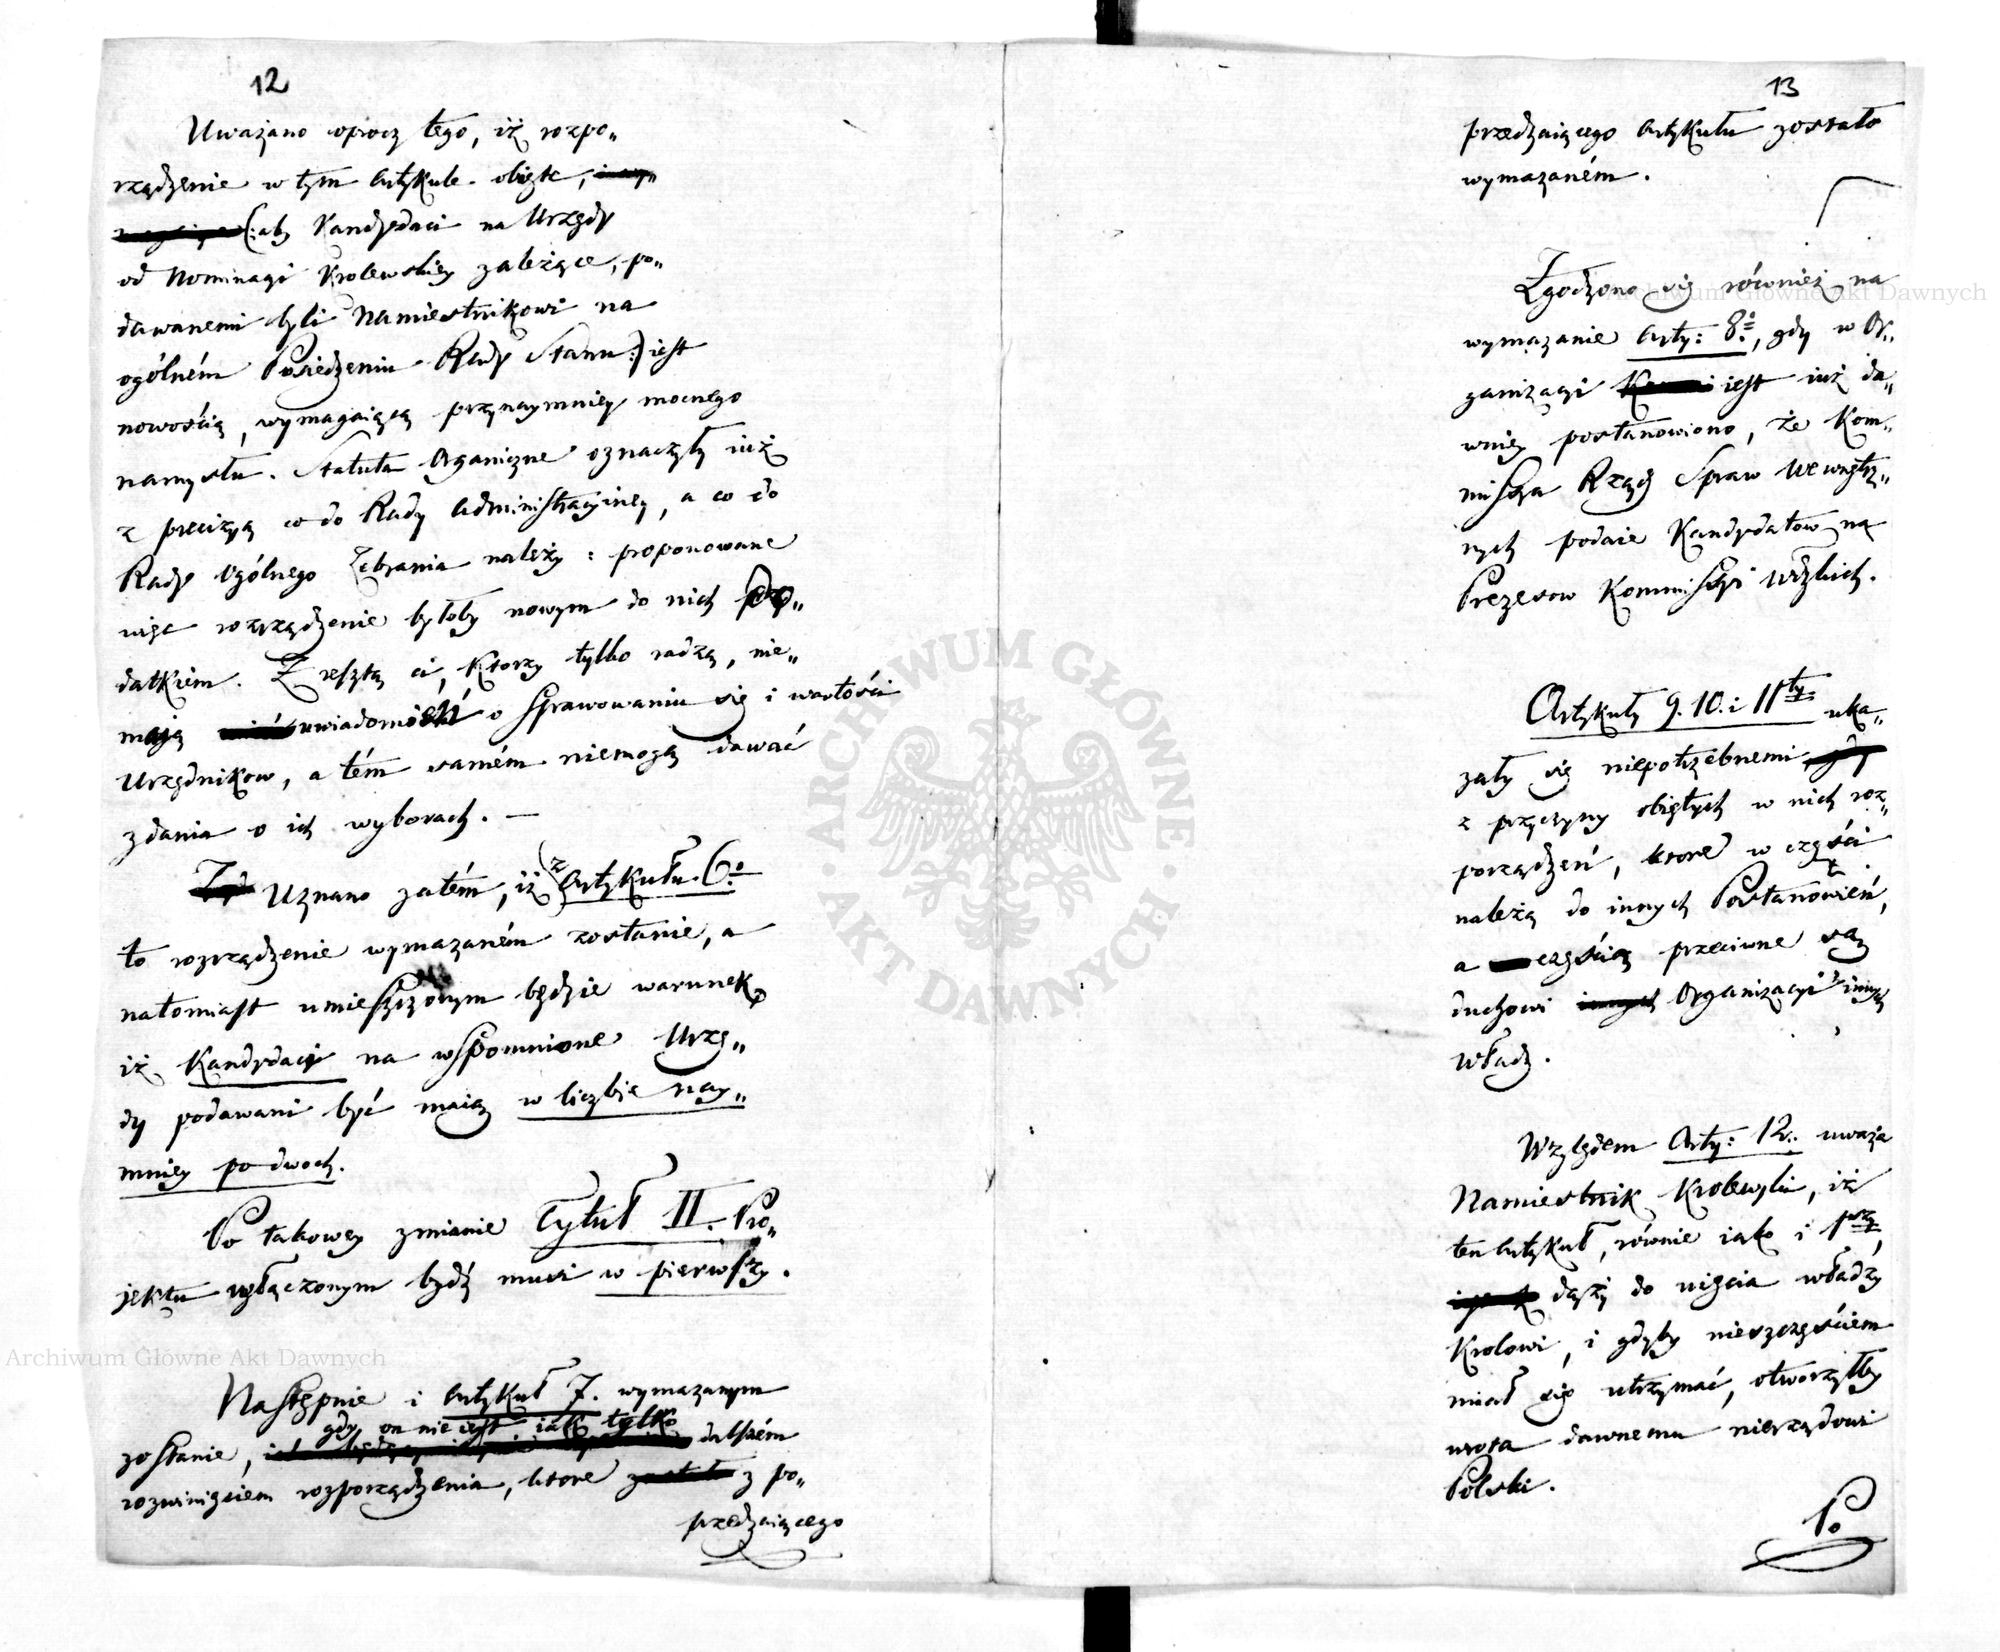 12
Uważano oprocz tego, iż rozpo„
rządzenie w tym Artykule obięte,
(:aby Kandydaci na Urzędy
od Nominacyi Krolewskiey zależące, po„
dawanemi byli Namiestnikowi na
ogólném Posiedzeniu Rady Stanu:) iest
nowością, wymagaiącą przynaymniey mocnego
namysłu. Statuta Organiczne oznaczyły iuż
z precizyą co do Rady Administracyiney, a co do
Rady Ogólnego Zebrania należy: proponowane
więc rozrządzenie byłoby nowym do nich do„
datkiem. Zresztą ci, Ktorzy tylko radzą, nie„
mają uwiadomień o sprawowaniu się i wartości
Urzędnikow, a tém samém niemogą dawać
zdania o ich wyborach. —
Uznano zatém, iż z Artykułu 6o
to rozrządzenie wymazaném zostanie, a
natomiast umieszczonym będzie warunek,
iż Kandydaci na wspomnione Urzę„
dy podawani być maią w liczbie nay„
mniey po dwoch.
Po takowey zmianie Tytuł II. Pro„
jektu włączonym bydź musi w pierwszy.
Następnie i Artykuł 7. wymazanym
gdy on nie iest, iak tylko
zostanie, dalszém
rozwinięciem rozporządzenia, ktore z po„
przedzaiącego
13
przedzaiącego Artykułu zostało
wymazaném.
Zgodzono się również na
wymazanie Arty: 8o, gdy w Or„
ganizacyi iest iuż da„
wniey postanowiono, że Kom„
missya Rząd Spraw Wewnętrz„
nych podaie Kandydatow na
Prezesow Kommissyi Wdzkich.
Artykuły 9. 10. i 11ty uka„
zały się niepotrzebnemi
z przyczyny obiętych w nich roz„
porządzeń, ktore w części
należą do innych Postanowień,
a częścią przeciwne są
duchowi Organizacyi innych
Władz.
Względem Arty: 12. uważa
Namiestnik Krolewski, iż
ten Artykuł, równie iako i 1wszy
dąży do uięcia władzy
Krolowi, i gdyby nieszczęściem
miał się utrzymać, otworzyłby
wrota dawnemu nierządowi
Polski.
Po
Archiwum Główne Akt Dawnych
Archiwum Główne Akt Dawnych
ARCHIWUM GŁÓWNE
AKT DAWNYCH